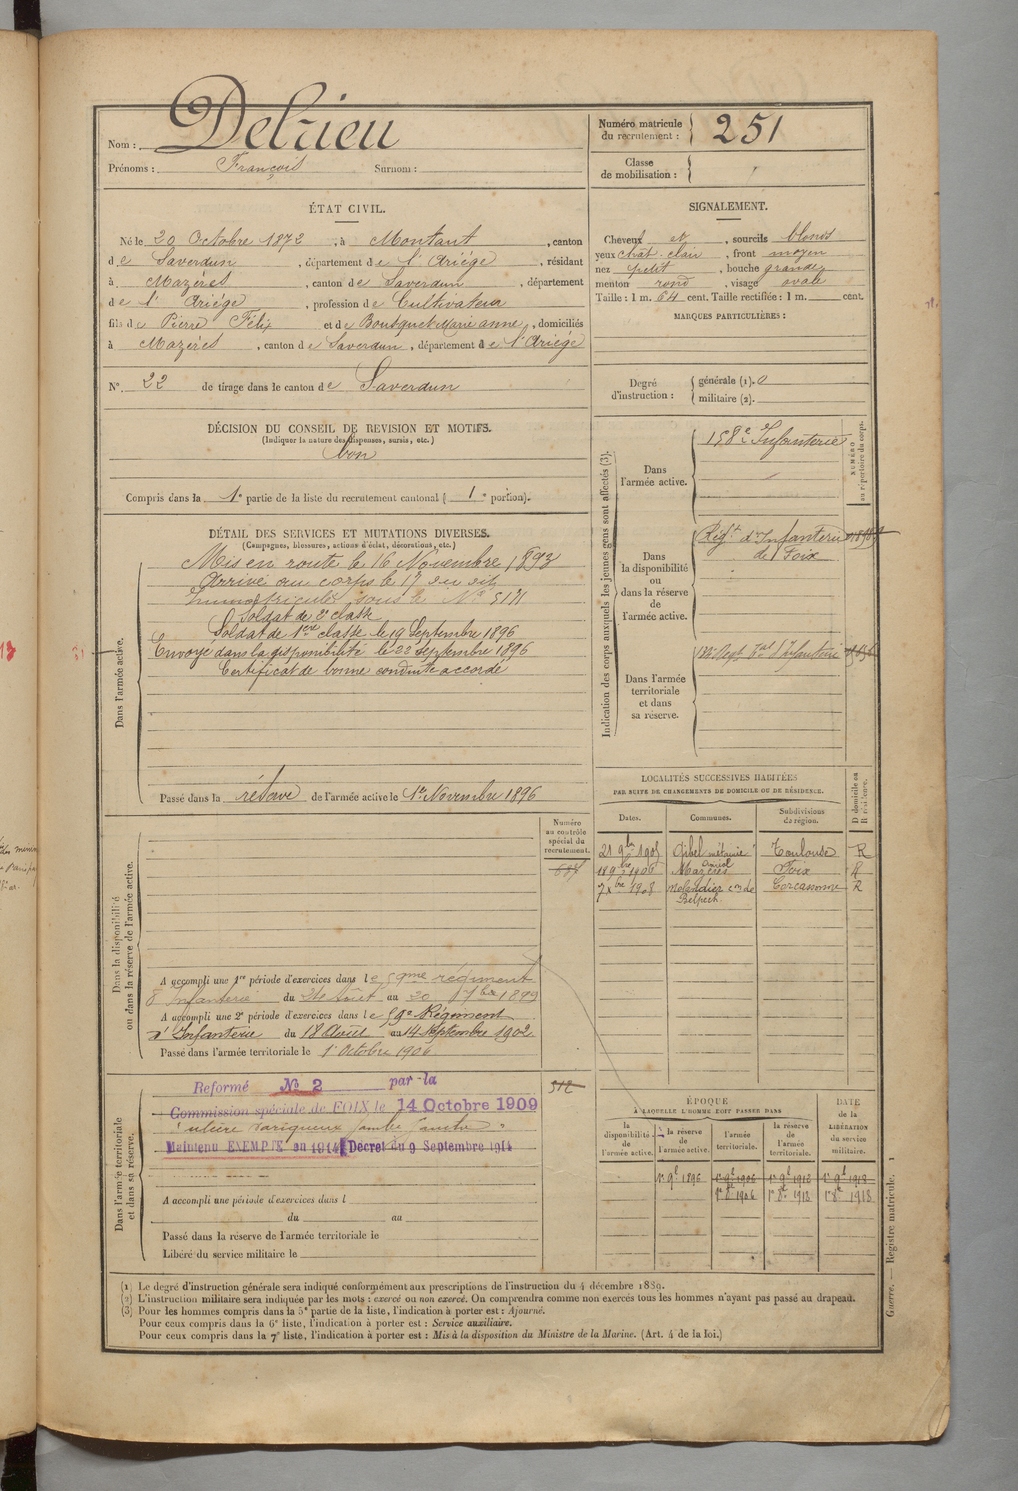 Nom : Delrieu
Prénoms : François Surnom :
Numéro matricule du recrutement : 251
Classe de mobilisation :
ÉTAT CIVIL.
Né le 20 Octobre 1872, à Montaut, canton
de Saverdun, département de l'Ariège, résidant
à Mazères, canton de Saverdun, département
de l'Ariège, profession de Cultivateur
fils de Pierre Félix et de Bousquet Marie anne, domiciliés
à Mazères, canton de Saverdun, département de l'Ariège
N° 22 de tirage dans le canton de Saverdun
SIGNALEMENT.
Cheveux et, sourcils blonds
yeux chat. clair, front moyen
nez petit, bouche grande
menton rond, visage ovale
Taille : 1 m. 64 cent. Taille rectifiée : 1 m. cent.
MARQUES PARTICULIÈRES :
Degré d'instruction : générale (1). 0
militaire (2).
DÉCISION DU CONSEIL DE REVISION ET MOTIFS.
(Indiquer la nature des dispenses, sursis, etc.)
bon
Compris dans la 1e partie de la liste du recrutement cantonal ( 1e portion).
DÉTAIL DES SERVICES ET MUTATIONS DIVERSES.
(Campagnes, blessures, actions d'éclat, décorations, etc.)
Dans l'armée active.
Mis en route le 16 Novembre 1893
Arrivé au corps le 17 du dit
Immatriculé sous le N° 5171
Soldat de 2e classe
Soldat de 1ère classe le 19 Septembre 1896
Envoyé dans la disponibilité le 22 septembre 1896
Certificat de bonne conduite accordé
Passé dans la réserve de l'armée active le 1er Novembre 1896
Indication des corps auxquels les jeunes gens sont affectés (3).
NUMÉRO au répertoire du corps.
Dans l'armée active.
158e Infanterie
Dans la disponibilité ou dans la réserve de l'armée active.
Régt d'Infanterie
de Foix
Dans l'armée territoriale et dans sa réserve.
LOCALITÉS SUCCESSIVES HABITÉES
PAR SUITE DE CHANGEMENTS DE DOMICILE OU DE RÉSIDENCE.
Dates. Communes. Subdivisions de région. D domicile ou R résidence.
21 9bre 1905 Gibel Toulouse R
18 9bre 1906 Mazères Foix R
7 Xbre 1908 Belpech Carcassonne R
Dans la disponibilité ou dans la réserve de l'armée active.
Numéro au contrôle spécial du recrutement.
A accompli une 1re période d'exercices dans le 59me régiment
d'Infanterie du 24 Août au 20 7bre 1899
A accompli une 2e période d'exercices dans le 59e Régiment
d'Infanterie du 18 Août au 14 Septembre 1902
Passé dans l'armée territoriale le 1 Octobre 1906
Dans l'armée territoriale et dans sa réserve.
512
Reformé N° 2 par la
Commission spéciale de FOIX le 14 Octobre 1909
ulcère variqueux jambe gauche
Maintenu EXEMPTE en 1914 Décret du 9 Septembre 1914
A accompli une période d'exercices dans l
du au
Passé dans la réserve de l'armée territoriale le
Libéré du service militaire le
ÉPOQUE
A LAQUELLE L'HOMME DOIT PASSER DANS
DATE de la LIBÉRATION du service militaire.
la disponibilité de l'armée active. la réserve de l'armée active. l'armée territoriale. la réserve de l'armée territoriale.
1er 9bre 1896 1er 9bre 1906 1er 9bre 1912 1er 9bre 1918
1er 8bre 1906 1er 8bre 1912 1er 8bre 1918
Guerre. — Registre matricule. 1
(1) Le degré d'instruction générale sera indiqué conformément aux prescriptions de l'instruction du 4 décembre 1889.
(2) L'instruction militaire sera indiquée par les mots : exercé ou non exercé. On comprendra comme non exercés tous les hommes n'ayant pas passé au drapeau.
(3) Pour les hommes compris dans la 5e partie de la liste, l'indication à porter est : Ajourné.
Pour ceux compris dans la 6e liste, l'indication à porter est : Service auxiliaire.
Pour ceux compris dans la 7e liste, l'indication à porter est : Mis à la disposition du Ministre de la Marine. (Art. 4 de la loi.)